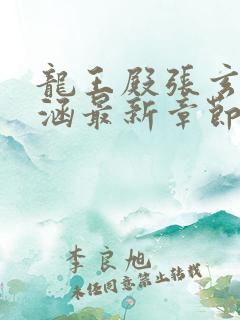 龍王殿張玄
涵最新章節
李良旭
未任同意禁止转载